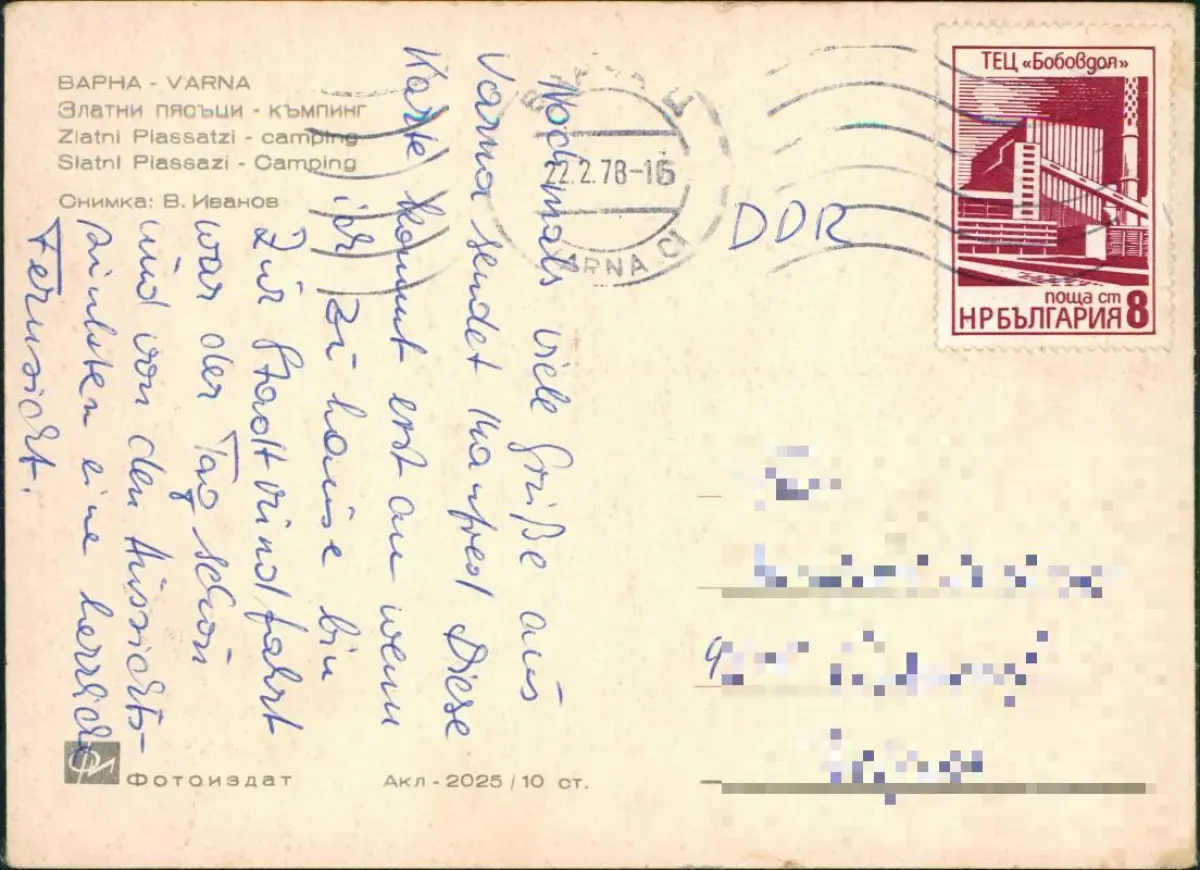 ВАРНА - VARNA
Златни пясъци - къмпинг
Zlatni Piassatzi - camping
Slatni Piassazi - Camping
Снимка: В. Иванов
Nochmals viele Grüße aus
Varna sendet Manfred Diese
Karte kommt erst an wenn
ich zu hause bin
Zur Stadtrundfahrt
war der Tag schön
und von den Aussichts-
punkten eine herrlich
Fernsicht.
22.2.78-16
VARNA
DDR
ТЕЦ «Бобовдол»
поща ст 8
НРБЪЛГАРИЯ
Фотоиздат
Акл - 2025 / 10 ст.